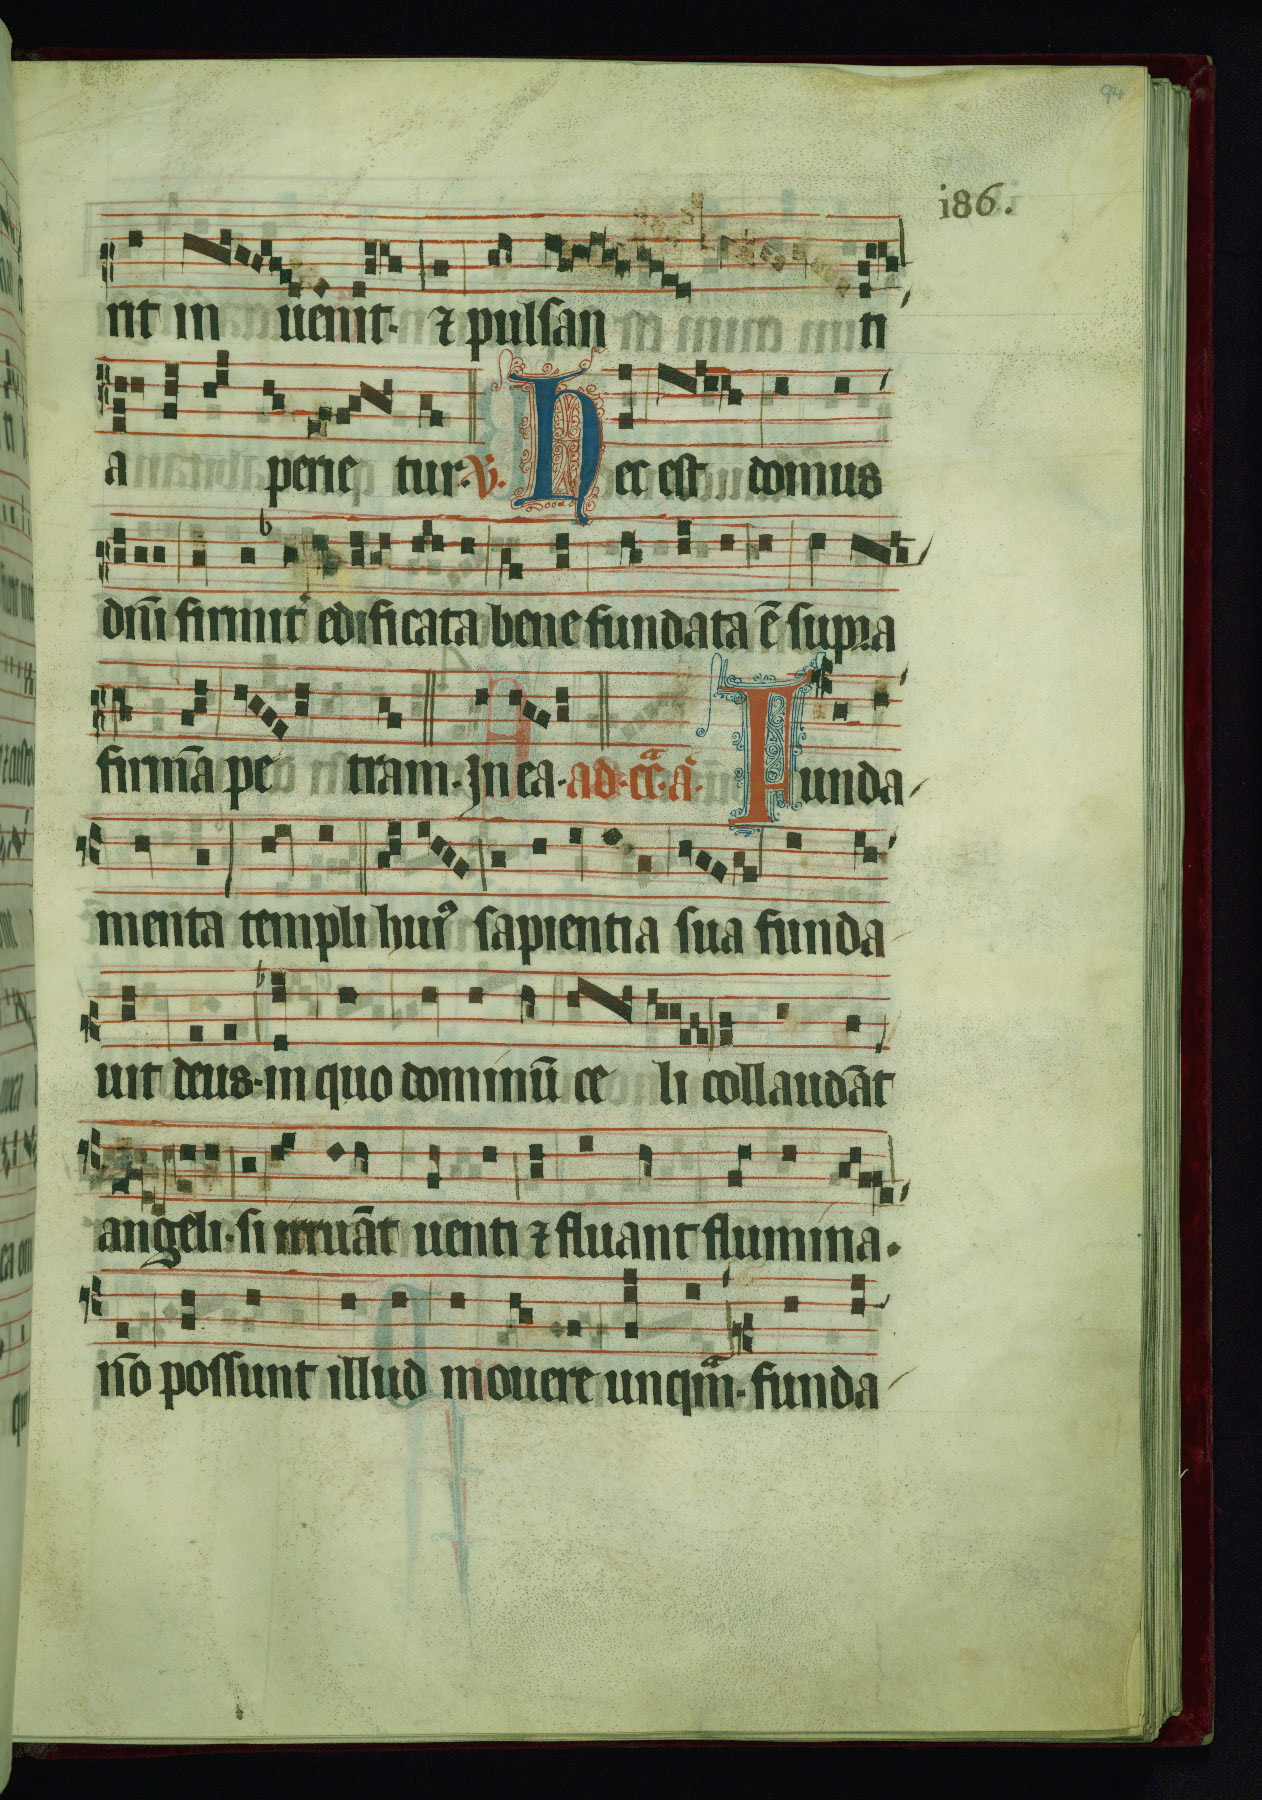 94
i86.
rit in uenit. ⁊ pulsan ti
a perie tur. V̄. Hec est domus
dn̄i firmit᷑ edificata bene fundata ē supra
firmā pe tram. In ea. ad. cā. a. Funda
menta templi huiꝰ sapientia sua funda
uit deus. in quo dominū ce li collaudāt
angeli. si irruāt uenti ⁊ fluant flumina.
nō possunt illud mouere unqm̄. funda